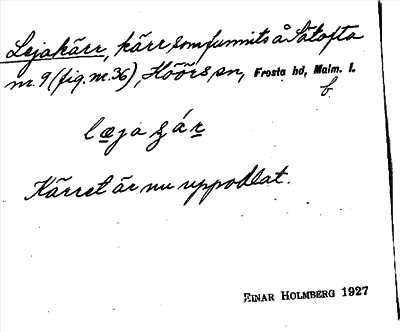 Lejakärr, kärr, som funnits å Sätofta
nr. 9 (fig. nr. 36), Höörs sn, Frosta hd, Malm. l.
b
læja
Kärret är nu uppodlat.
EINAR HOLMBERG 1927